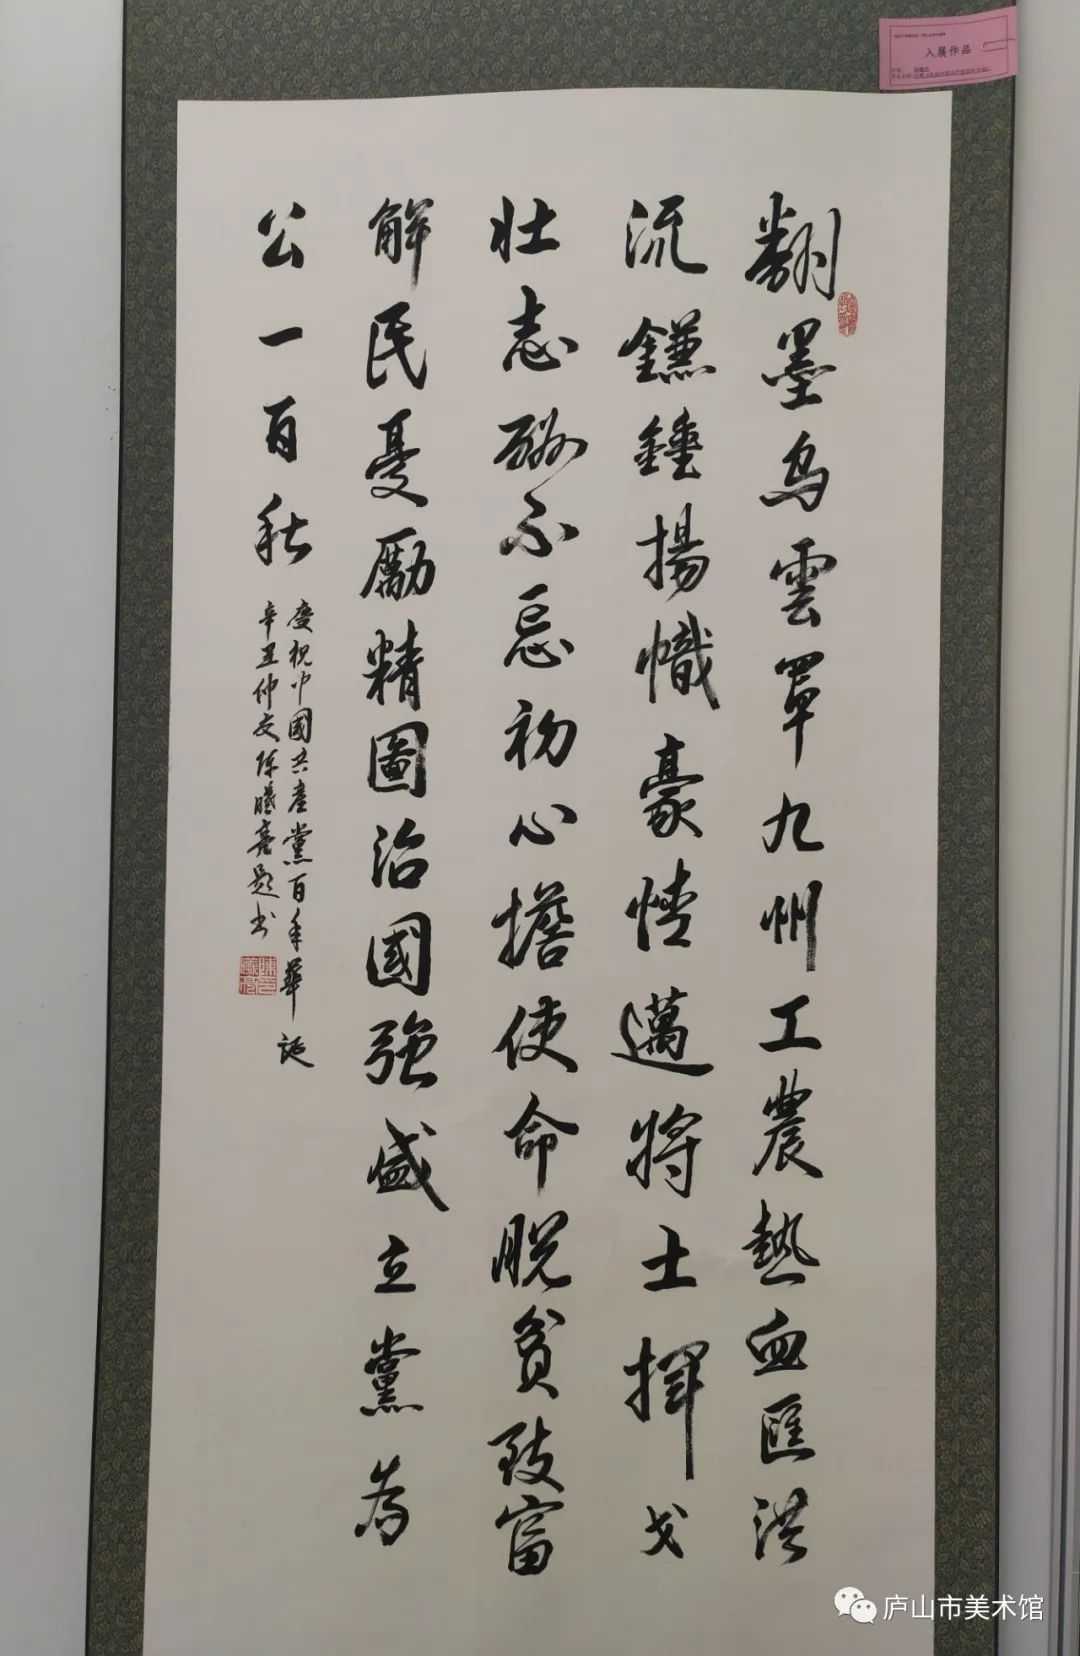 入展作品
翻墨乌雲罩九州工農熱血匯洪
流鐮錘揚幟豪情邁將士揮戈
壮志酬不忘初心擔使命脱貧致富
解民憂勵精圖治國強盛立黨為
公一百秋
慶祝中國共產黨百年華誕
辛丑仲夏陈曦亮題书
庐山市美术馆